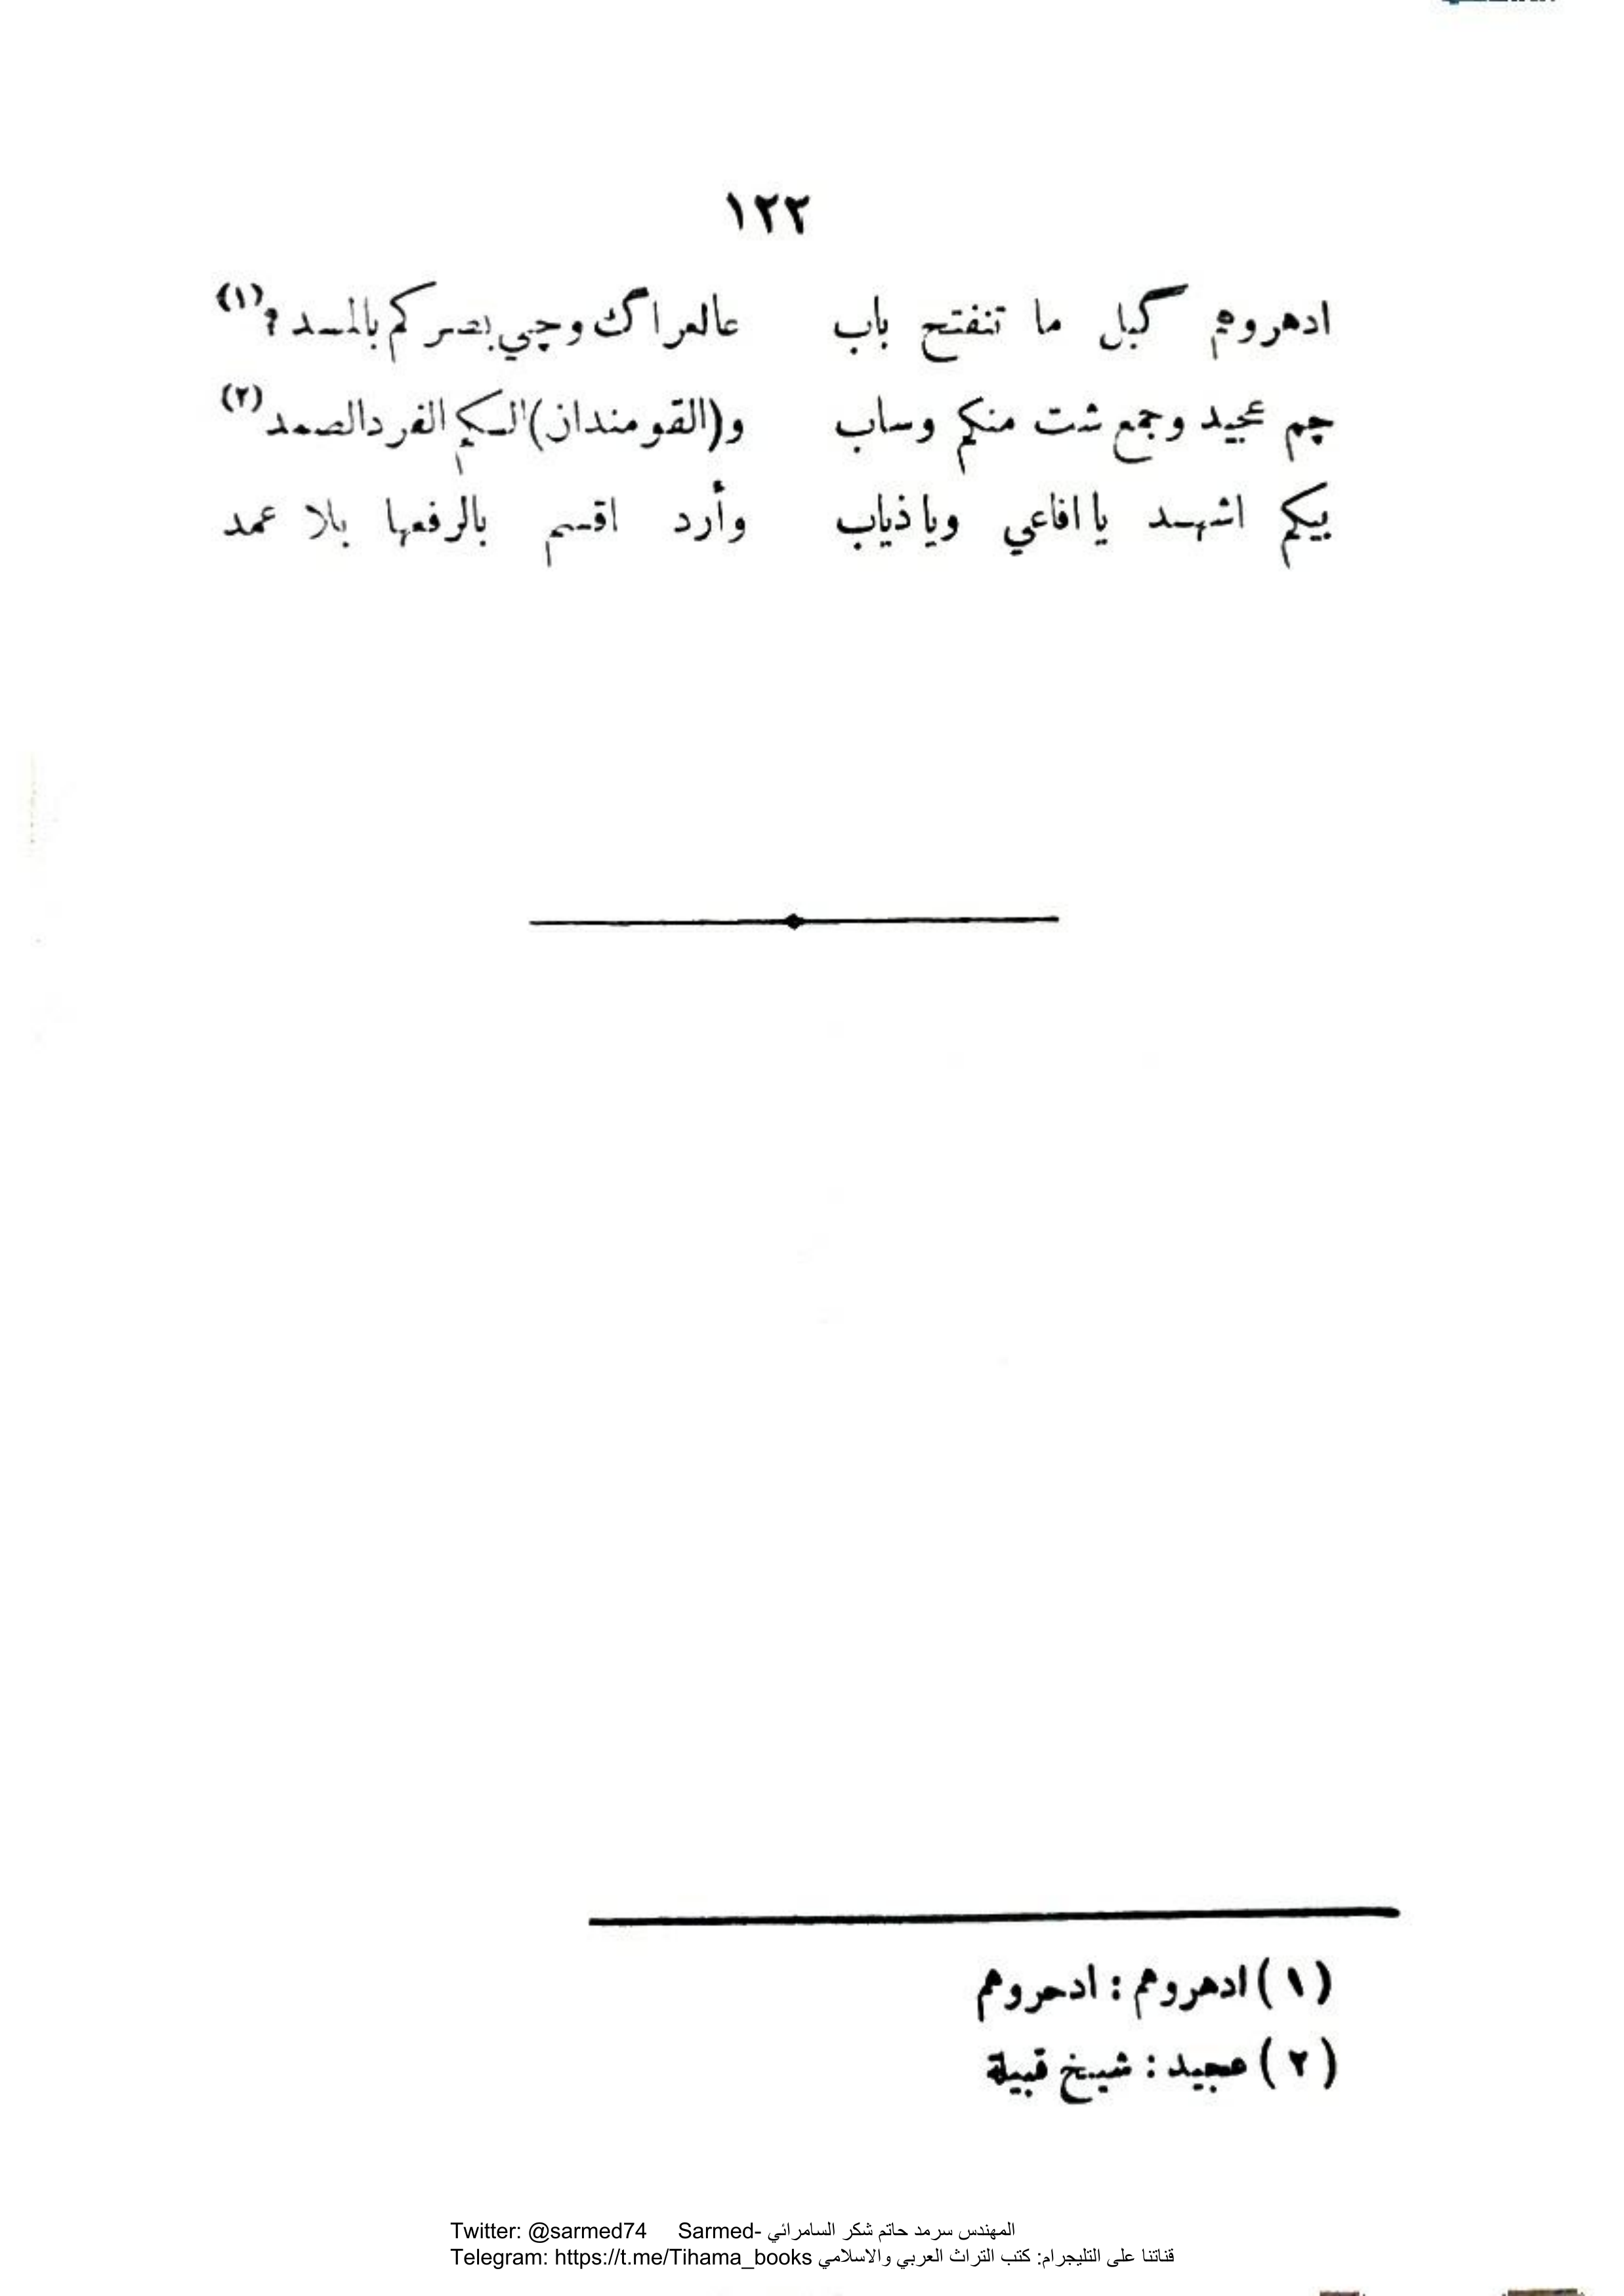 ١٢٢
ادهروهم گبل ما تنفتح باب عالعراگ وچي بصركم بالمسد ؟ (١)
چم عجيد وجمع شت منكم وساب و(القومندان) السكم الفرد الصمد (٢)
بيكم اشهد يا افاعي ويا ذياب وأرد اقسم بالرفعها بلا عمد
(١) ادهروهم : ادحروهم
(٢) عجيد : شيخ قبيلة
Twitter: @sarmed74 Sarmed- المهندس سرمد حاتم شكر السامرائي
Telegram: https://t.me/Tihama_books قناتنا على التليجرام: كتب التراث العربي والاسلامي